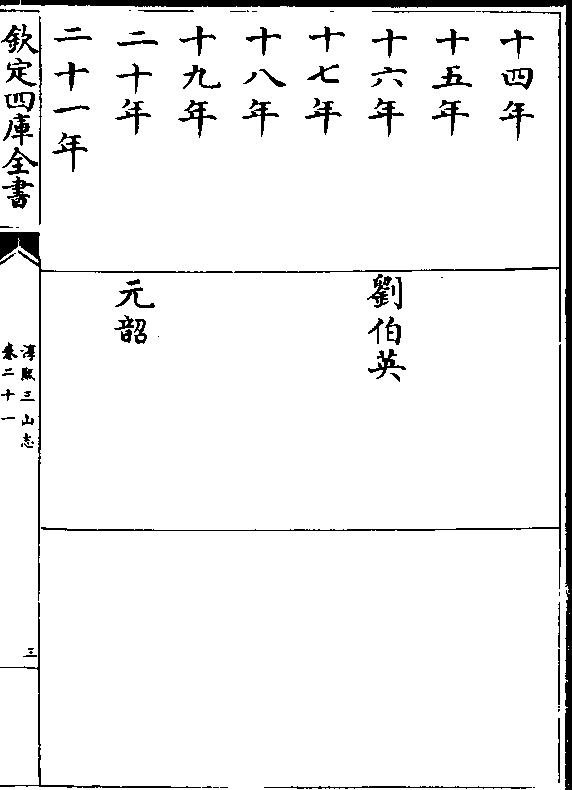 十四年
十五年
十六年
劉伯英
十七年
十八年
十九年
二十年
元韶
二十一年
欽定四庫全書
淳熙三山志
卷二十一
三